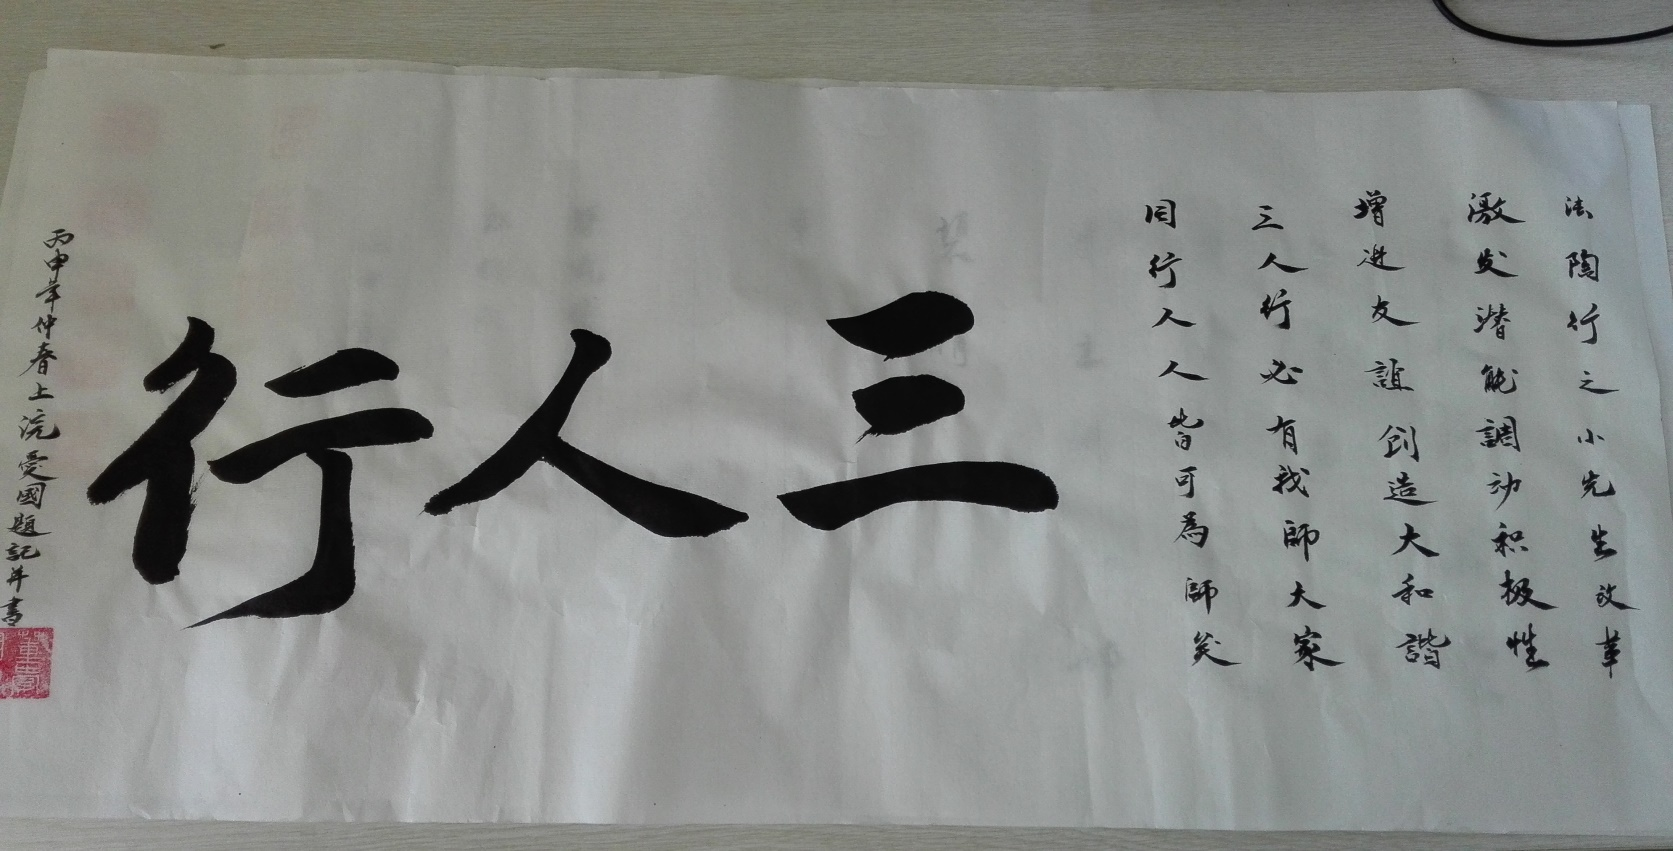 法陶行之小先生改革
激发潜能調动积极性
增进友誼创造大和諧
三人行必有我師大家
同行人人皆可為師矣
三人行
丙申年仲春上浣愛國題記并書